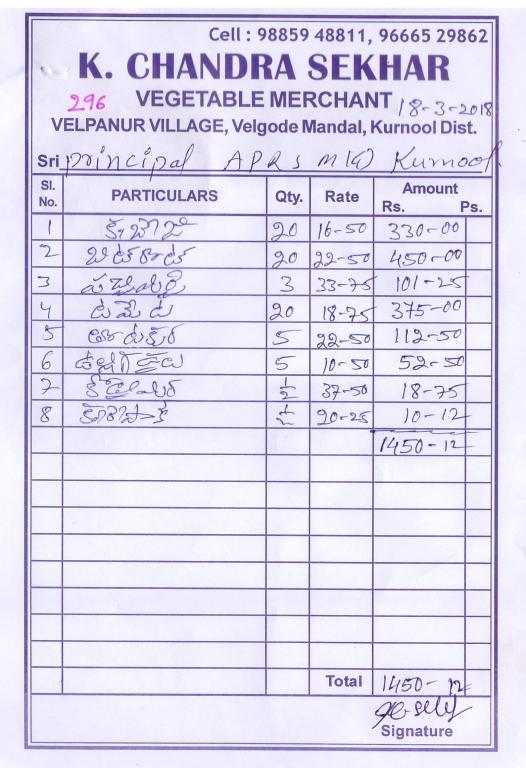 Cell : 98859 48811, 96665 29862
K. CHANDRA SEKHAR
296 VEGETABLE MERCHANT 18-3-2018
VELPANUR VILLAGE, Velgode Mandal, Kurnool Dist.
Sri Principal APRS MKD Kurnool.
Sl. No. PARTICULARS Qty. Rate Amount Rs. Ps.
1 క్యాబేజి 20 16-50 330-00
2 బీట్‌రూట్ 20 22-50 450-00
3 పచ్చిమిర్చి 3 33-75 101-25
4 టమేట 20 18-75 375-00
5 తోటకూర 5 22-50 112-50
6 ఉల్లిగడ్డలు 5 10-50 52-50
7 కొత్తిమీర ½ 37-50 18-75
8 కరివేపాకు ½ 20-25 10-12
1450-12
Total 1450-12
Signature